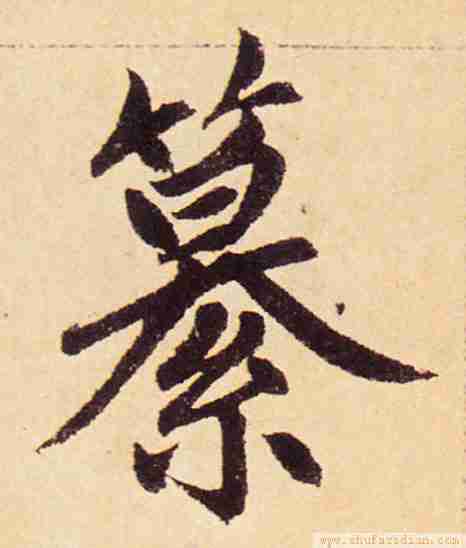 纂
www.shufazidian.com